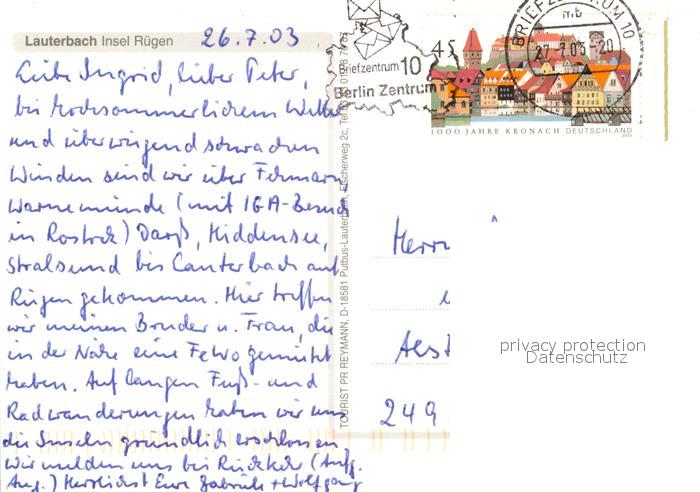 Lauterbach Insel Rügen
26.7.03
Liebe Ingrid, lieber Peter,
bei hochsommerlichem Wetter
und überwiegend schwachen
Winden sind wir über Fehmarn
Warnemünde (mit IGA-Besuch
in Rostock) Darß, Hiddensee,
Stralsund bis Lauterbach auf
Rügen gekommen. Hier treffen
wir meinen Bruder u. Frau, die
in der Nähe eine FeWo gemietet
haben. Auf langen Fuß- und
Radwanderungen haben wir uns
die Inseln gründlich erschlossen.
Wir melden uns bei Rückkehr (Anfg.
Aug.) Herzlichst Eure Gabriele + Wolfgang
TOURIST PR REYMANN, D-18581 Putbus-Lauterbach, Fischerweg 2c, Tel.
Briefzentrum 10
Berlin Zentrum
BRIEFZENTRUM 10
mb
27.7.03-20
45
1000 JAHRE KRONACH DEUTSCHLAND
2003
Herrn
249
privacy protection
Datenschutz